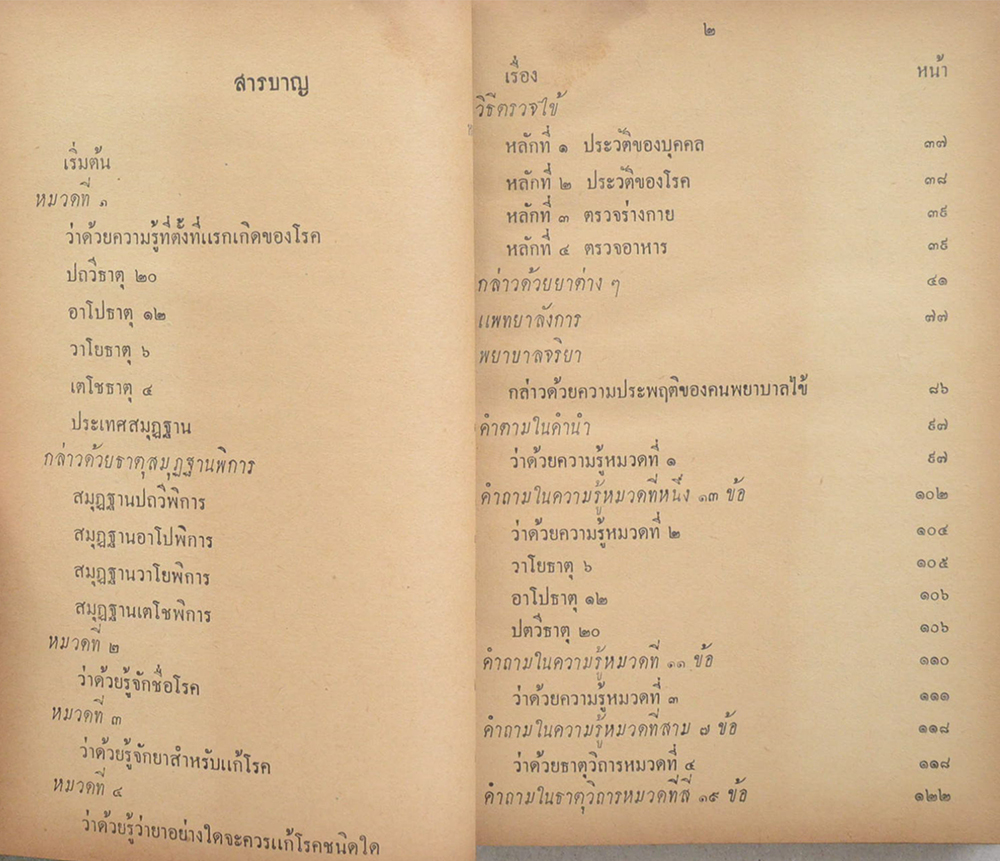 สารบาญ
เริ่มต้น
หมวดที่ ๑
ว่าด้วยความรู้ที่ตั้งที่แรกเกิดของโรค
ปถวีธาตุ ๒๐
อาโปธาตุ ๑๒
วาโยธาตุ ๖
เตโชธาตุ ๔
ประเทศสมุฏฐาน
กล่าวด้วยธาตุสมุฏฐานพิการ
สมุฏฐานปถวีพิการ
สมุฏฐานอาโปพิการ
สมุฏฐานวาโยพิการ
สมุฏฐานเตโชพิการ
หมวดที่ ๒
ว่าด้วยรู้จักชื่อโรค
หมวดที่ ๓
ว่าด้วยรู้จักยาสำหรับแก้โรค
หมวดที่ ๔
ว่าด้วยรู้ว่ายาอย่างใดจะควรแก้โรคชนิดใด
๒
เรื่อง หน้า
วิธีตรวจไข้
หลักที่ ๑ ประวัติของบุคคล ๓๗
หลักที่ ๒ ประวัติของโรค ๓๘
หลักที่ ๓ ตรวจร่างกาย ๓๙
หลักที่ ๔ ตรวจอาหาร ๓๙
กล่าวด้วยยาต่าง ๆ ๔๑
แพทยาลังการ ๗๗
พยาบาลจริยา
กล่าวด้วยความประพฤติของคนพยาบาลไข้ ๘๖
คำตามในคำนำ ๙๗
ว่าด้วยความรู้หมวดที่ ๑ ๙๗
คำถามในความรู้หมวดที่หนึ่ง ๑๓ ข้อ ๑๐๒
ว่าด้วยความรู้หมวดที่ ๒ ๑๐๔
วาโยธาตุ ๖ ๑๐๕
อาโปธาตุ ๑๒ ๑๐๖
ปตวีธาตุ ๒๐ ๑๐๖
คำถามในความรู้หมวดที่ ๑๑ ข้อ ๑๑๐
ว่าด้วยความรู้หมวดที่ ๓ ๑๑๑
คำถามในความรู้หมวดที่สาม ๗ ข้อ ๑๑๘
ว่าด้วยธาตุวิถารหมวดที่ ๔ ๑๑๘
คำถามในธาตุวิถารหมวดที่สี่ ๑๕ ข้อ ๑๒๒